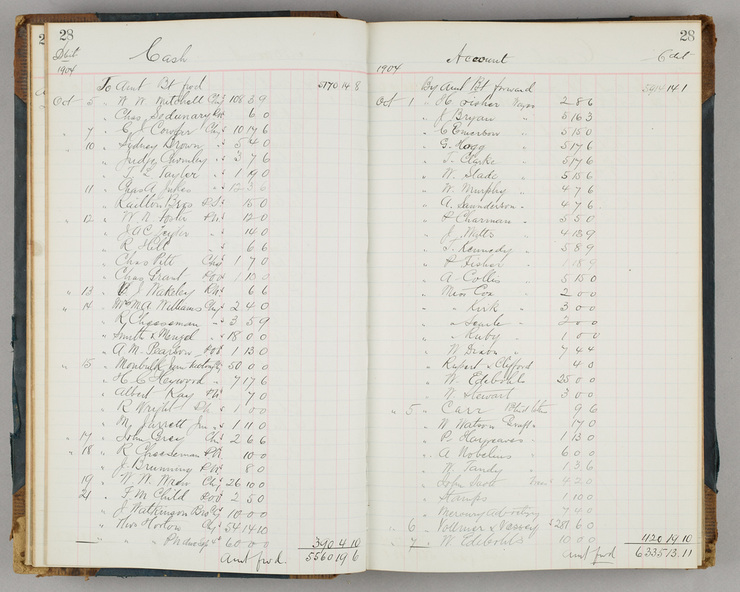 28
Debit
Cash
1904
To Amt Bt fwd 5170 14 8
Oct 5 " W. W. Mitchell Chq 108 3 9
" Chas Sedunary 6 0
" 7 " C J Cowper Chq 10 17 6
" 10 " Sydney Brown " 5 4 0
" Judge Chomley " 3 7 6
" Taylor " 1 9 0
11 " Chas A Jukes " 12 3 6
" Railton Bros 15 0
" 12 " W. N. Foster P.N. 12 0
" J & C Taylor " 14 0
" R Hill " 6 6
" Chas Pitt Chq 1 7 0
" Chas Grant 1 10 0
" 13 " J Wakeley P.N. 6 6
" 14 " Mrs M A Williams Chq 2 4 0
" R Cheeseman " 3 5 9
" Smith & Menzel " 18 0 0
" A. M. Pearson 1 13 0
" 15 " 50 0 0
" H. C. Heywood " 7 17 6
" Albert Kay P.N. 7 0
" R Wright 1 0 0
" Mr Jarrett Jun " 1 11 0
" 17 " John Grey Chq 2 6 6
" 18 " R Cheeseman P.N. 10 0
" J. Brunning P.N. 8 0
19 " W. W. Chq 26 10 0
21 " F. M. Child 2 5 0
" J Watkinson 10 0 0
" Thos Horton Chq 54 14 10
" " 60 0 0 390 4 10
Amt fwd. 5560 19 6
28
Account
Credit
1904
By Amt Bt forward 14 1
Oct 1 " H. Fisher Wages 2 8 6
" J Bryan " 5 16 3
" C Emerson " 5 15 0
" G. Hogg " 5 17 6
" T. Clarke " 5 17 6
" W. Slade " 5 15 6
" W. Murphy " 4 7 6
" A. Saunderson " 4 7 6
" P Charman " 5 5 0
" J. Mitts " 4 13 9
" T. Kennedy " 5 8 9
" P Fisher " 1 18 9
" A. Colles " 5 15 0
" Miss Cox " 2 0 0
" " Kirk " 3 0 0
" " Searle " 2 0 0
" " Ruby " 1 0 0
" N. Dixon " 7 4 4
" Rupert & Clifford 4 0
" W. Edebohls 25 0 0
" N Stewart 3 0 0
" 5 " Carr 9 6
" W Watson 17 0
" P. Hargreaves " 1 13 0
" A Nobelius " 6 0 0
" M Tandy " 1 3 6
" John Scott 4 2 0
" Stamps 1 10 0
" Mercury Advertising 7 4 0
" 6 " Vollmer & Vassey 6 0
" 7 " W Edebohls 10 0 0 1120 19 10
Amt fwd 6335 13 11